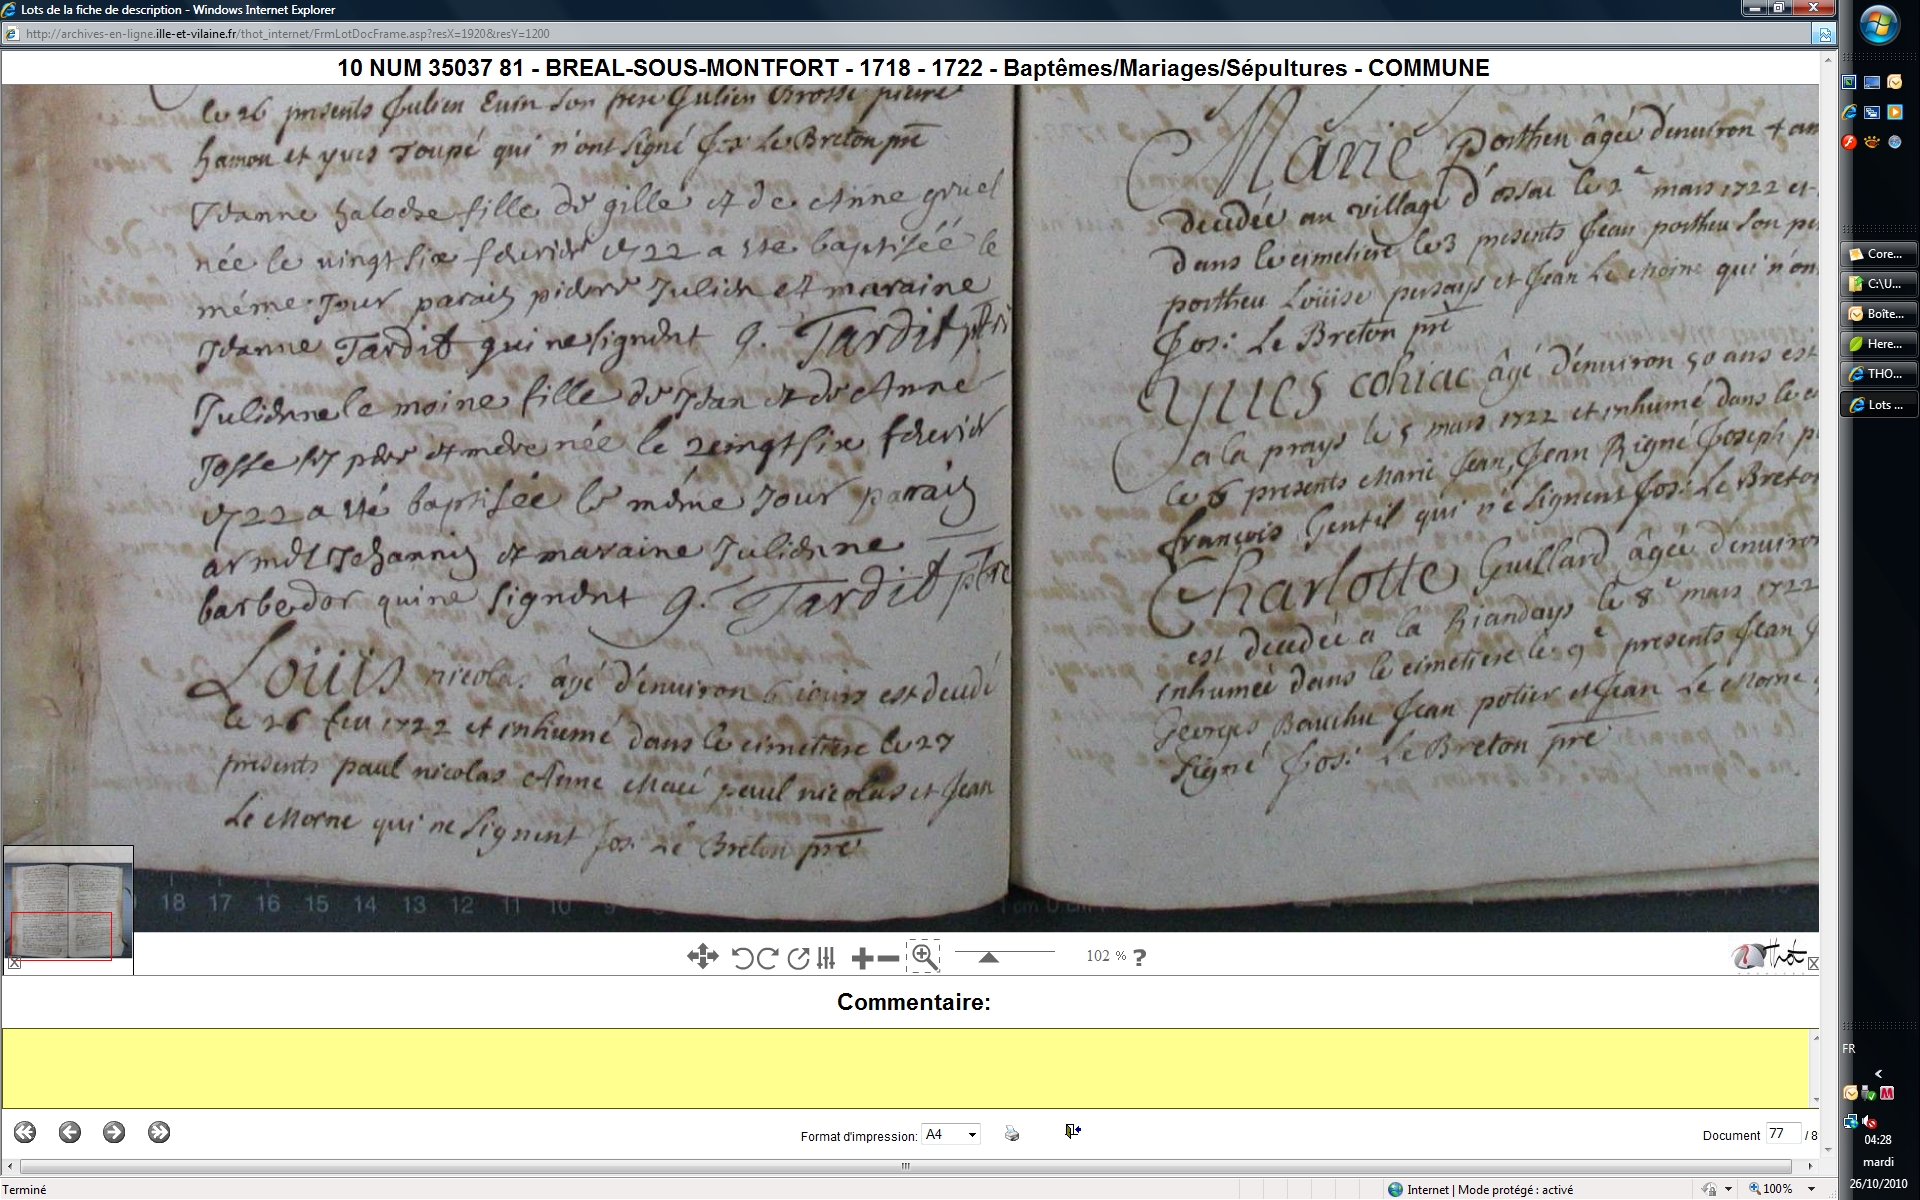 Lots de la fiche de description - Windows Internet Explorer
http://archives-en-ligne.ille-et-vilaine.fr/thot_internet/FrmLotDocFrame.asp?resX=1920&resY=1200
10 NUM 35037 81 - BREAL-SOUS-MONTFORT - 1718 - 1722 - Baptêmes/Mariages/Sépultures - COMMUNE
le 26 presents Julien Euin son pere Julien Brosse pierre
hamon et yves Toupé qui n'ont signé Jos Le Breton pre
Jeanne haloche fille de gille et de Anne gruel
née le vingt six fevrier 1722 a ete baptisée le
méme jour parain pierre Julien et maraine
Jeanne Tardif qui ne signent g. Tardif ptre
Julienne le moine fille de Jean et de Anne
Josse ses pere et mere née le vingt six fevrier
1722 a eté baptisée le méme jour parain
armel Jehannin et maraine Julienne
barbedor qui ne signent g. Tardif ptre
Loüis nicolas âgé d'enuiron 6 iours est decedé
le 26 feu 1722 et inhumé dans le cimetiere le 27
presents paul nicolas Anne Macé paul nicolas et Jean
Le Morne qui ne signent Jos: Le Breton pre
Marie portheu âgée d'enuiron 4 an
decedée au village d'ossac le 2e mars 1722 et
dans le cimetiere le 3 presents Jean portheu son pe
portheu Loüise persays et Jean Le Moine qui n'on
Jos: Le Breton pre
Yves cohiac âgé d'enuiron 50 ans est
a la prays le 5 mars 1722 et inhumé dans le ci
le 6 presents Marie Jean, Jean Rigné Joseph p
françois Gentil qui ne signent Jos: Le Breton
Charlotte Guillard âgée d'enuiron
est decedée a la Riandays le 8e mars 1722
inhumée dans le cimetiere le 9e presents Jean
Georges Bauchu Jean potier et Jean Le Morne
signé Jos: Le Breton pre
18 17 16 15 14 13 12 11 10 9
1 cm 0
102 % ?
Thot
Commentaire:
Format d'impression: A4
Document 77 / 8
Terminé
Internet | Mode protégé : activé
100%
Core...
C:\U...
Boîte...
Here...
THO...
Lots ...
FR
04:28
mardi
26/10/2010